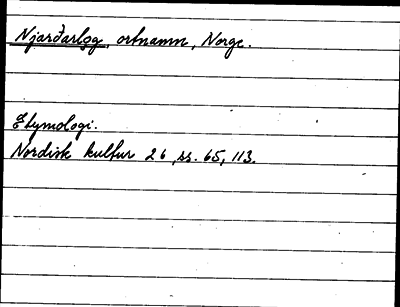 Njarðarlǫg, ortnamn, Norge.
Etymologi.
Nordisk kultur 26, ss. 65, 113.